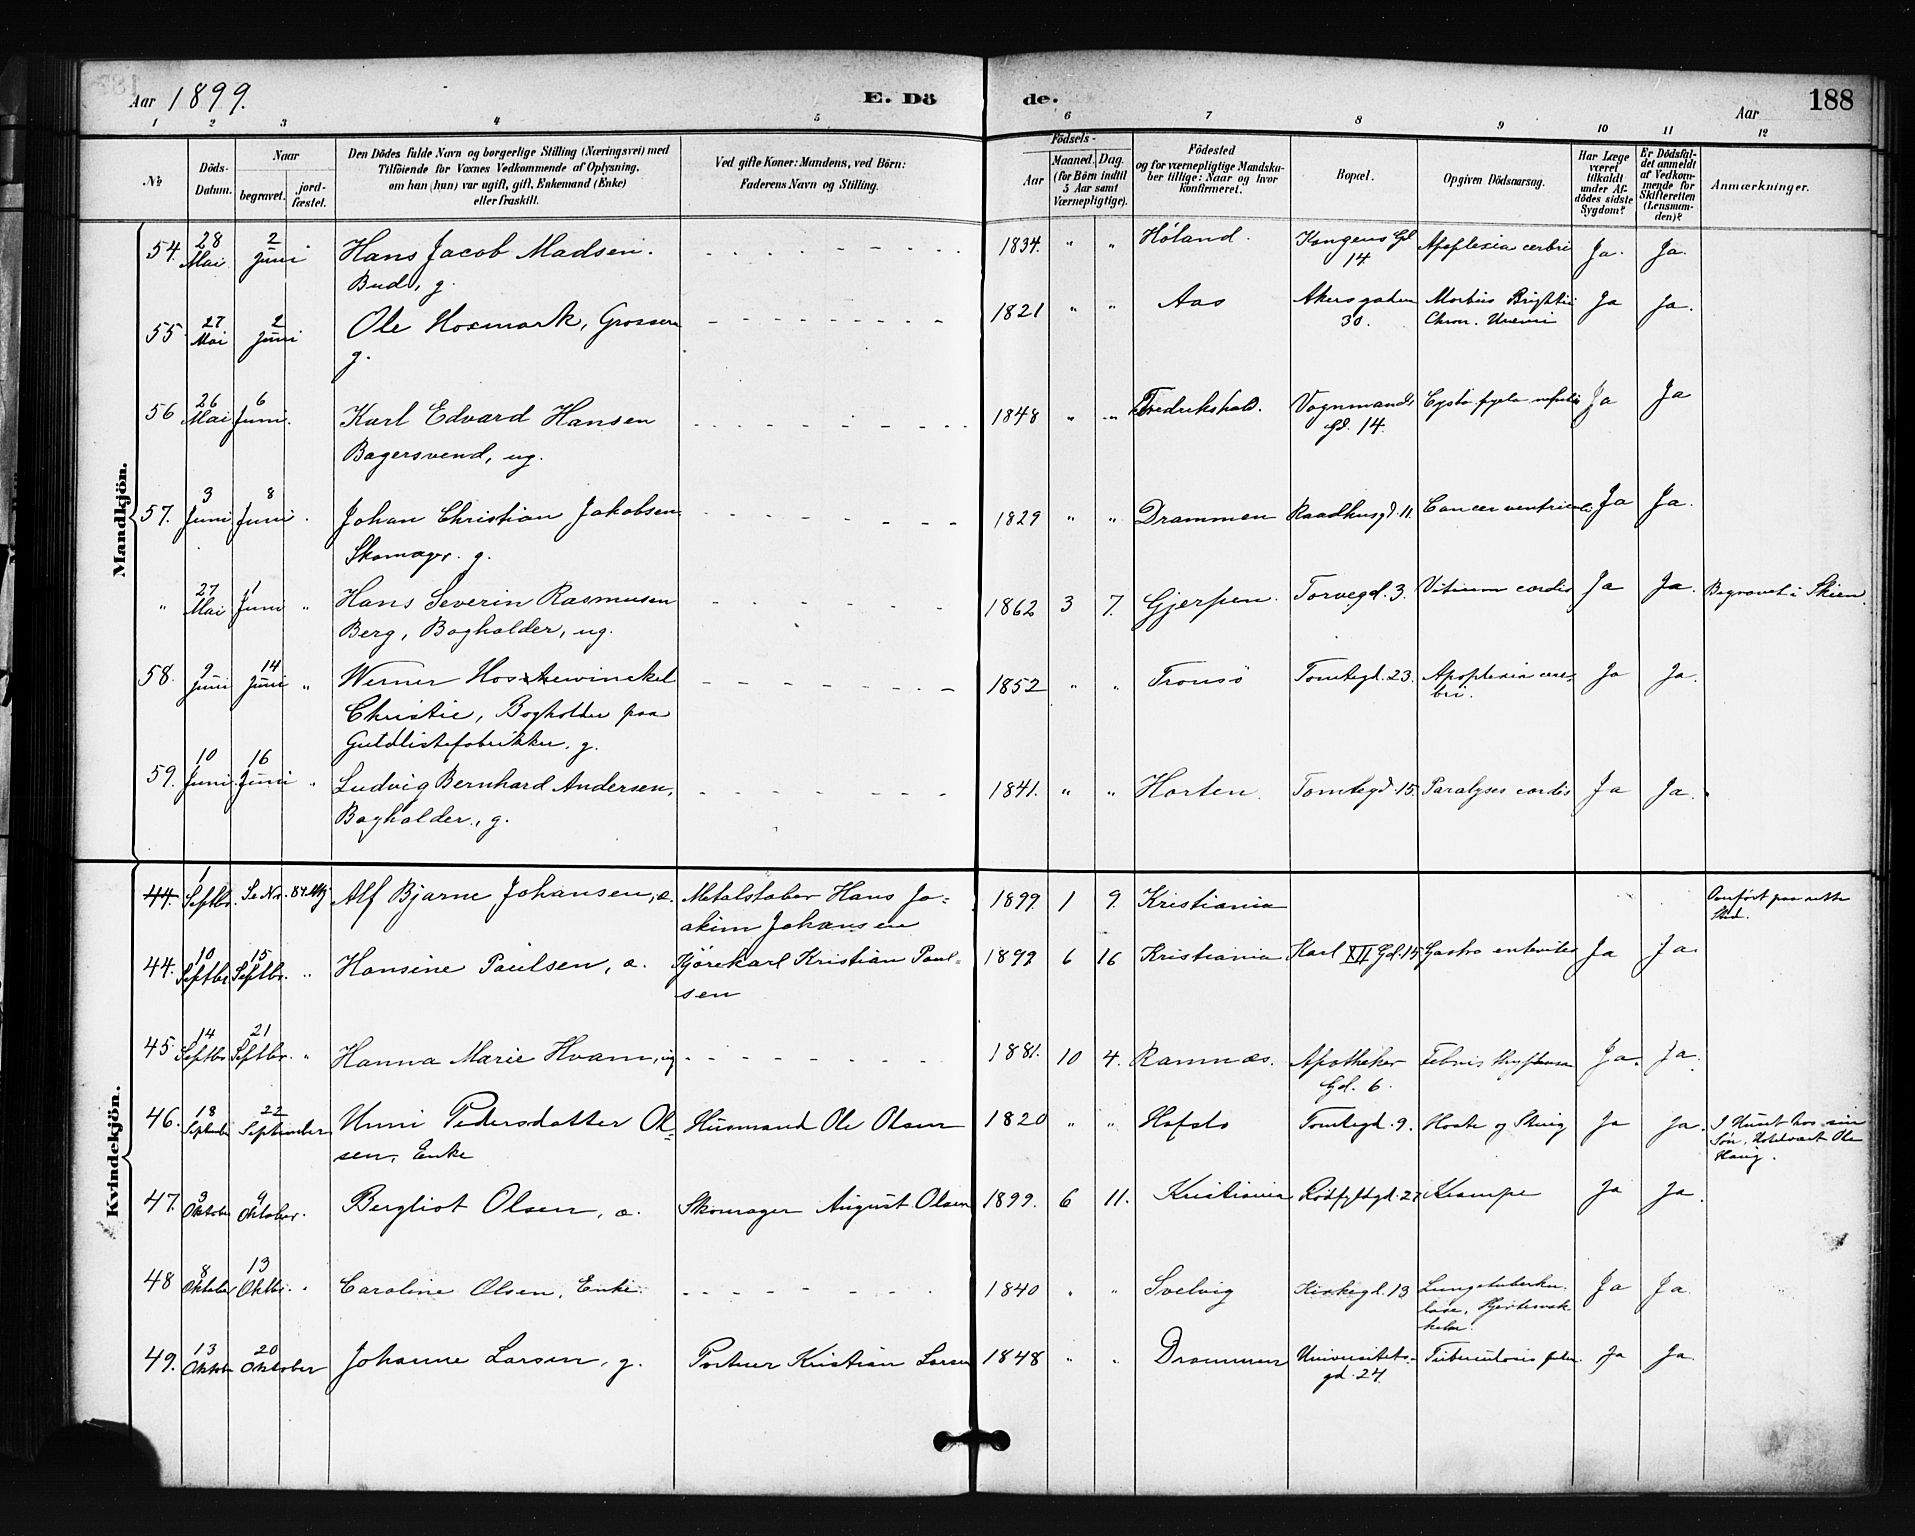 Aar 1899. E. Dö de. Aar 188
1 2 3 4 5 6 7 8 9 10 11 12
No Döds-Datum. Naar begravet. jord-fæstet. Den Dödes fulde Navn og borgerlige Stilling (Næringsvei) med Tilföiende for Voxnes Vedkommende af Oplysning, om han (hun) var ugift, gift, Enkemand (Enke) eller fraskilt. Ved gifte Koner: Mandens, ved Börn: Faderens Navn og Stilling. Födsels- Aar Maaned. Dag. (for Börn indtil 5 Aar samt Værnepligtige). Födested og for værnepligtige Mandska-ber tillige: Naar og hvor konfirmeret. Bopæl. Opgiven Dödsaarsag. Har Læge været tilkaldt under Af-dödes sidste Sygdom? Er Dödsfal-det anmeldt af Vedkom-mende for Skifteretten (Lensman-den)? Anmærkninger.
Mandkjön.
54. 28 Mai 2 Juni Hans Jacob Madsen. 1834. " " Höland. Kongens Gd 14. Apoplexia cerebri Ja. Ja.
Bud, g.
55. 27 Mai 2 Juni Ole Hosmark, Grosserer 1821 " " Aas Akersgaden 30. Morbus Brightii Chron. Uremi Ja Ja.
g.
56 26 Mai 6 Juni. Karl Edvard Hansen 1848 " " Fredrikshald. Vognmands Gd. 14. Cysto pyelo Ja Ja
Bagersvend, ug.
57. 3 Juni 8 Juni. Johan Christian Jakobsen 1829 " " Drammen Raadhusgd. 11. Cancer ventriculi Ja Ja.
Skomager. g.
" 27 Mai 1 Juni " Hans Severin Rasmusen 1862 3 7. Gjerpen. Torvegd. 3. Vitium cordis Ja Ja. Begravet i Skien.
Berg, Bogholder, ug.
58. 9 Juni 14 Juni " Werner Hosewinckel 1852 " " Tromsö Tomtegd. 23. Apoplexia cerebri. Ja Ja.
Christie, Bogholder paa
Guldlistefabrikken, g.
59. 10 Juni. 16 Juni " Ludvig Bernhard Andersen, 1841. " " Horten. Tomtegd. 15. Paralyses cordis Ja Ja.
Bogholder., g.
Kvindekjön.
44. 1 Septbr. Se No. 84 Alf Bjarne Johansen, æ. Metalstøber Hans Jo- 1899 1 9. Kristiania Omført paa rette Sted.
akim Johansen
44. 10 Septbr 15 Septbr. " Hansine Paulsen, æ. Kjørekarl Kristian Paul- 1899 6 16 Kristiania Karl XII Gd. 15. Gastro enterites Ja Ja.
sen
45. 14 Septbr 21 Septbr. " Hanna Marie Hvam, ug 1881. 10 4. Ramnæs. Apotheker Gd. 6. Febris Ja. Ja.
46. 18 September 22 September Unni Pedersdatter Ol- Husmand Ole Olsen 1820 " " Hafslo Tomtegd. 9. Hoste og Sting Ja Ja. I Huset hos sin
sen, Enke Søn, Ole Haug.
47. 3 Oktober 9 Oktober. Bergliot Olsen, æ. Skomager August Olsen 1899. 6 11. Kristiania Rödfyldgd. 27 Krampe Ja Ja.
48 8 Oktober 13 Oktbr. " Caroline Olsen, Enke. 1840 " " Svelvig Kirkegd. 13 Lungetuberku-lose, Ja Ja.
49. 13 Oktober 20 Oktober Johanne Larsen, g. Portner Kristian Larsen 1848 " " Drammen Universitets-gd. 24. Tuberculosis pulm. Ja Ja.